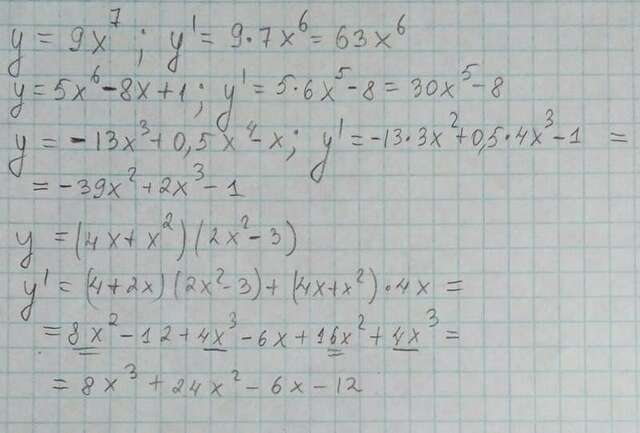 y = 9x⁷; y' = 9·7x⁶ = 63x⁶
y = 5x⁶ - 8x + 1; y' = 5·6x⁵ - 8 = 30x⁵ - 8
y = -13x³ + 0,5x⁴ - x; y' = -13·3x² + 0,5·4x³ - 1 =
= -39x² + 2x³ - 1
y = (4x + x²)(2x² - 3)
y' = (4 + 2x)(2x² - 3) + (4x + x²)·4x =
= 8x² - 12 + 4x³ - 6x + 16x² + 4x³ =
= 8x³ + 24x² - 6x - 12